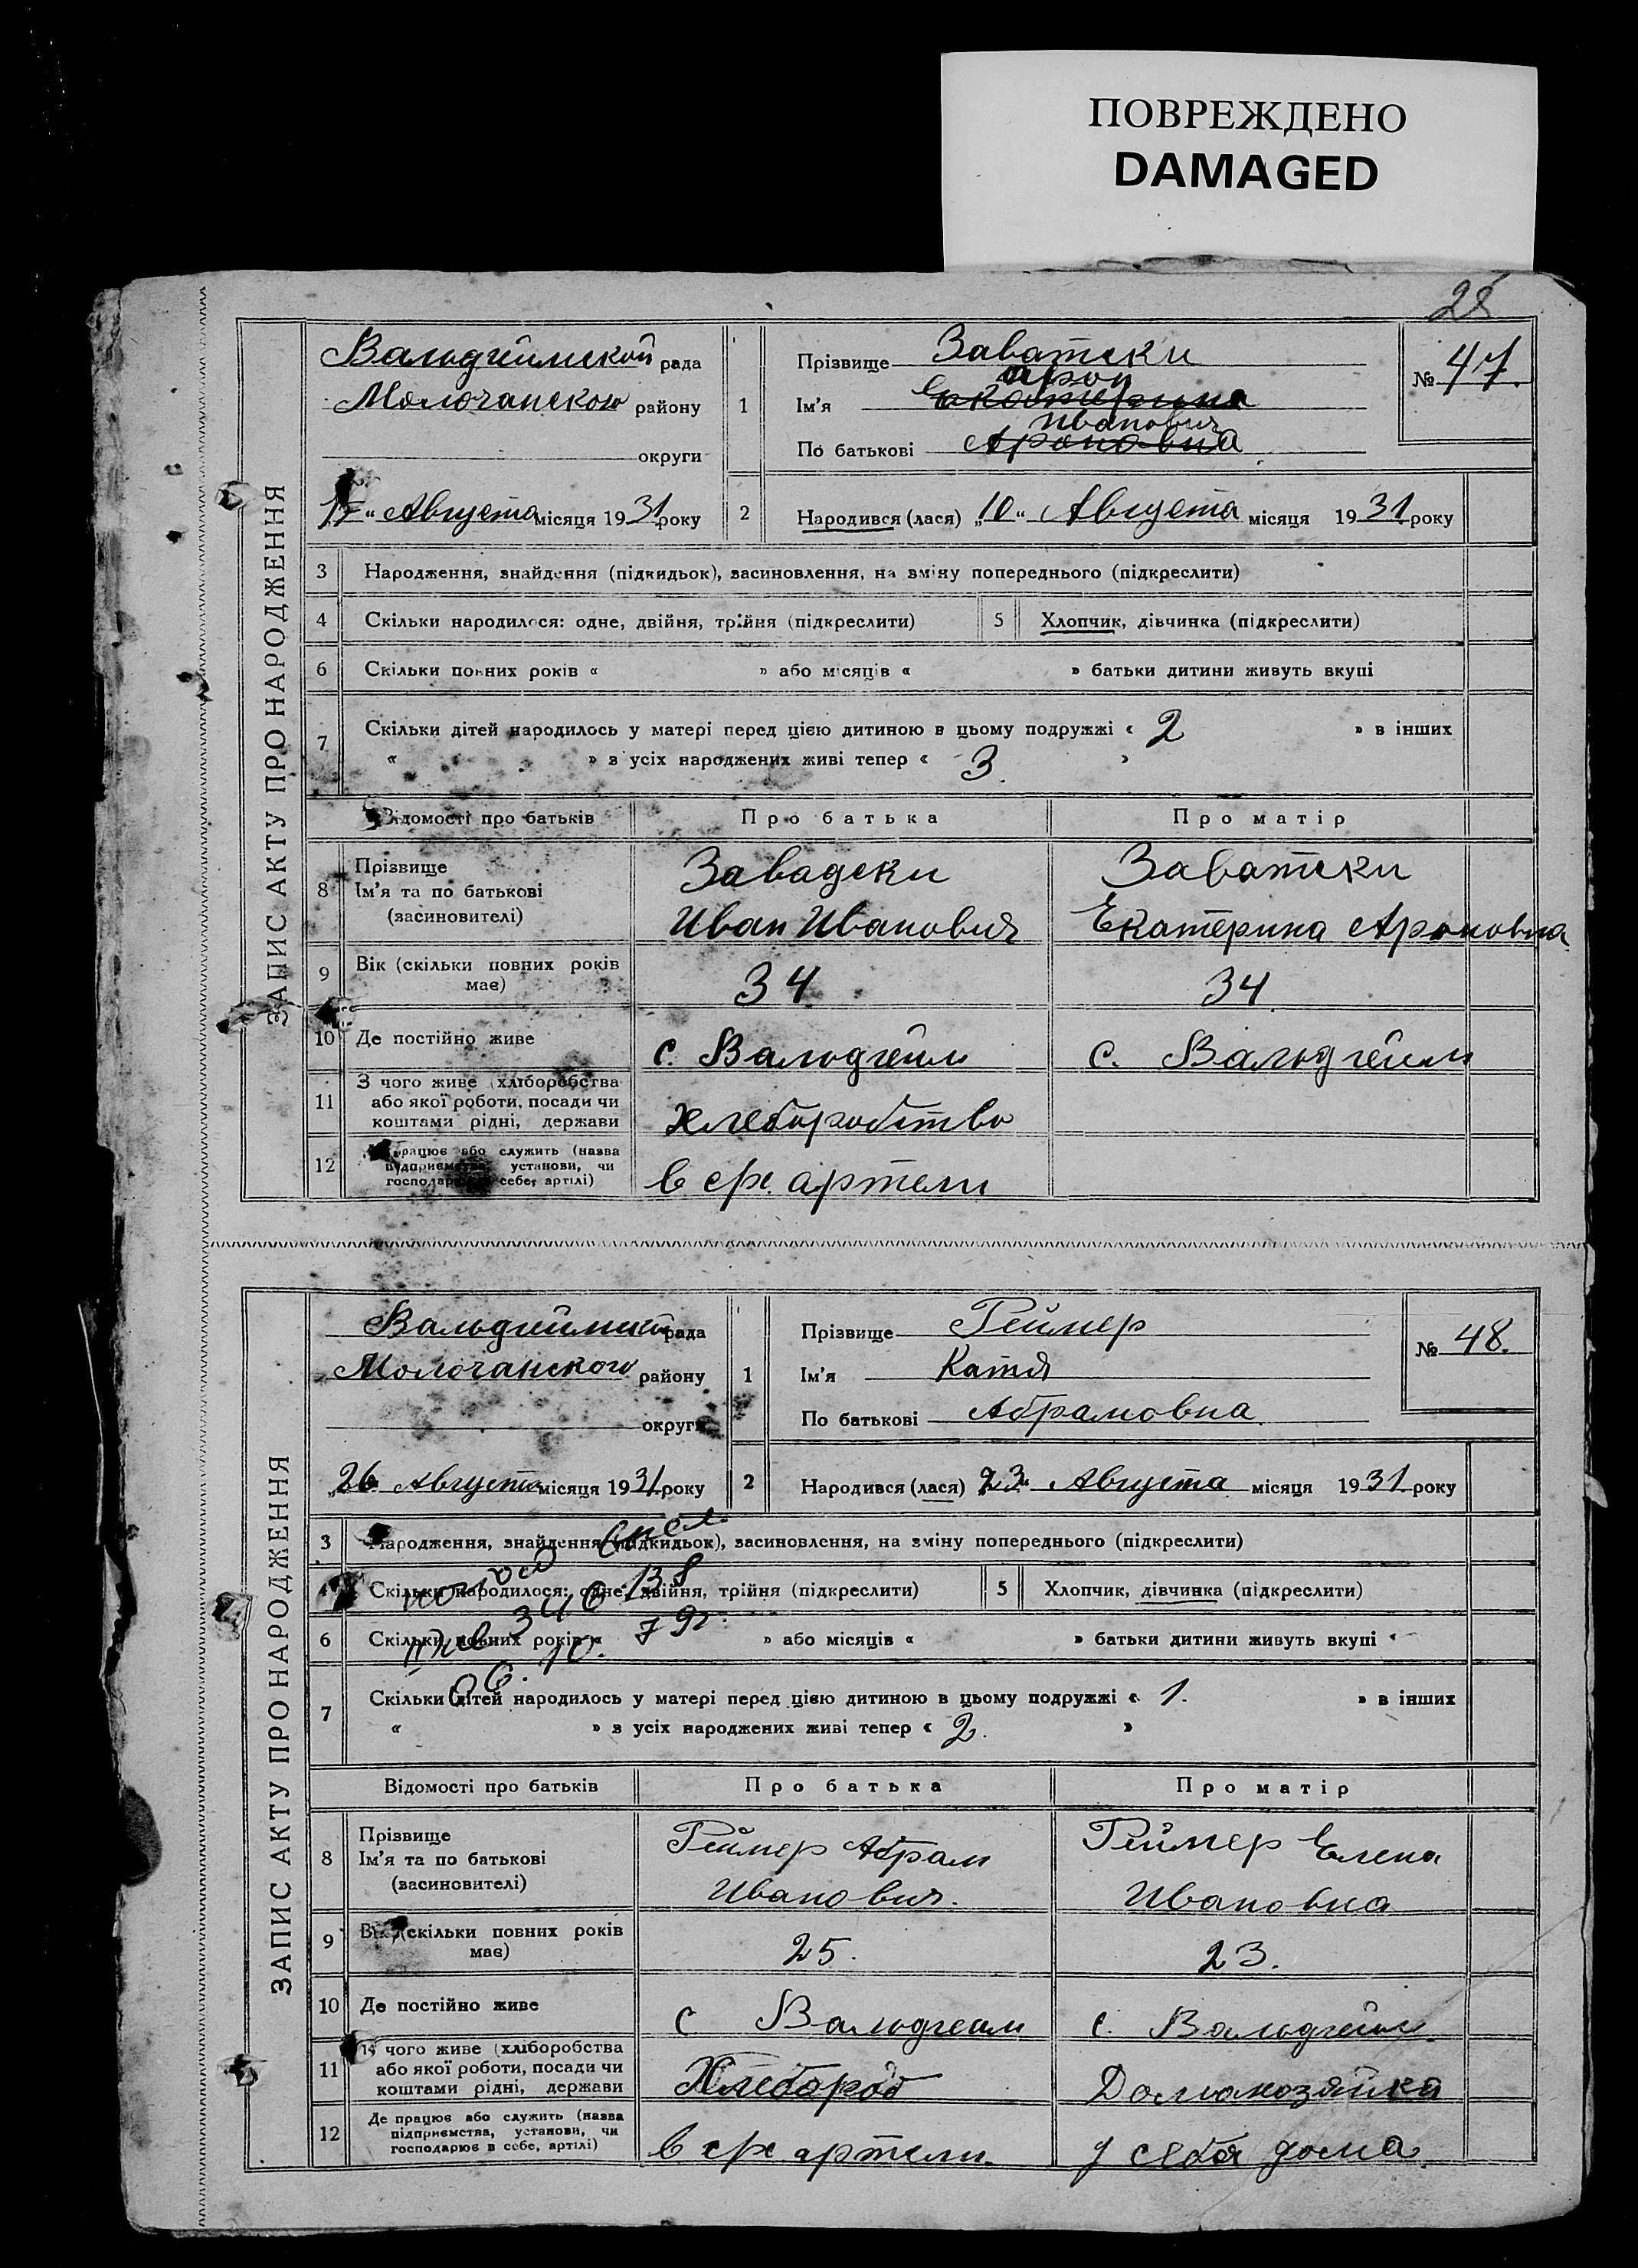 ПОВРЕЖДЕНО
DAMAGED
28
ЗАПИС АКТУ ПРО НАРОДЖЕННЯ
Вальдгеймской рада
Молочанского району
округи
15 „ Августа місяця 1931 року
1
Прізвище Заватски
Арон
Ім'я Екатерина
Иванович
По батькові Ароновна
№ 47.
2
Народився (лася) „10“ Августа місяця 1931 року
3 Народження, знайдення (підкидьок), засиновлення, на зміну попереднього (підкреслити)
4 Скільки народилося: одне, двійня, трійня (підкреслити) 5 Хлопчик, дівчинка (підкреслити)
6 Скільки повних років « » або місяців « » батьки дитини живуть вкупі
7 Скільки дітей народилось у матері перед цією дитиною в цьому подружжі « 2 » в інших
« » з усіх народжених живі тепер « 3. »
Відомості про батьків Про батька Про матір
8 Прізвище
Ім'я та по батькові
(засиновителі)
Завадски
Иван Иванович
Заватски
Екатерина Ароновна
9 Вік (скільки повних років
має)
34 34
10 Де постійно живе с. Вальдгейм с. Вальдгейм
11 З чого живе (хліборобства
або якої роботи, посади чи
коштами рідні, держави
хлеборобство
12 Де працює або служить (назва
підприємства, установи, чи
господарює в себе, артілі)
в с/х. артели
ЗАПИС АКТУ ПРО НАРОДЖЕННЯ
Вальдгеймской рада
Молочанского району
округи
„26 Августа місяця 1931 року
1
Прізвище Реймер
Ім'я Катя
По батькові Абрамовна
№ 48.
2
Народився (лася) 23 Августа місяця 1931 року
3 Народження, знайдення (підкидьок), засиновлення, на зміну попереднього (підкреслити)
4 Скільки народилося: одне, двійня, трійня (підкреслити) 5 Хлопчик, дівчинка (підкреслити)
6 Скільки повних років « » або місяців « » батьки дитини живуть вкупі
7 Скільки дітей народилось у матері перед цією дитиною в цьому подружжі « 1. » в інших
« » з усіх народжених живі тепер « 2. »
Відомості про батьків Про батька Про матір
8 Прізвище
Ім'я та по батькові
(засиновителі)
Реймер Абрам
Иванович.
Реймер Елена
Ивановна
9 Вік (скільки повних років
має)
25. 23.
10 Де постійно живе с Вальдгейм с. Вальдгейм
11 З чого живе (хліборобства
або якої роботи, посади чи
коштами рідні, держави
Хлебороб Домохозяйка
12 Де працює або служить (назва
підприємства, установи, чи
господарює в себе, артілі)
в с/х артели. у себя дома.